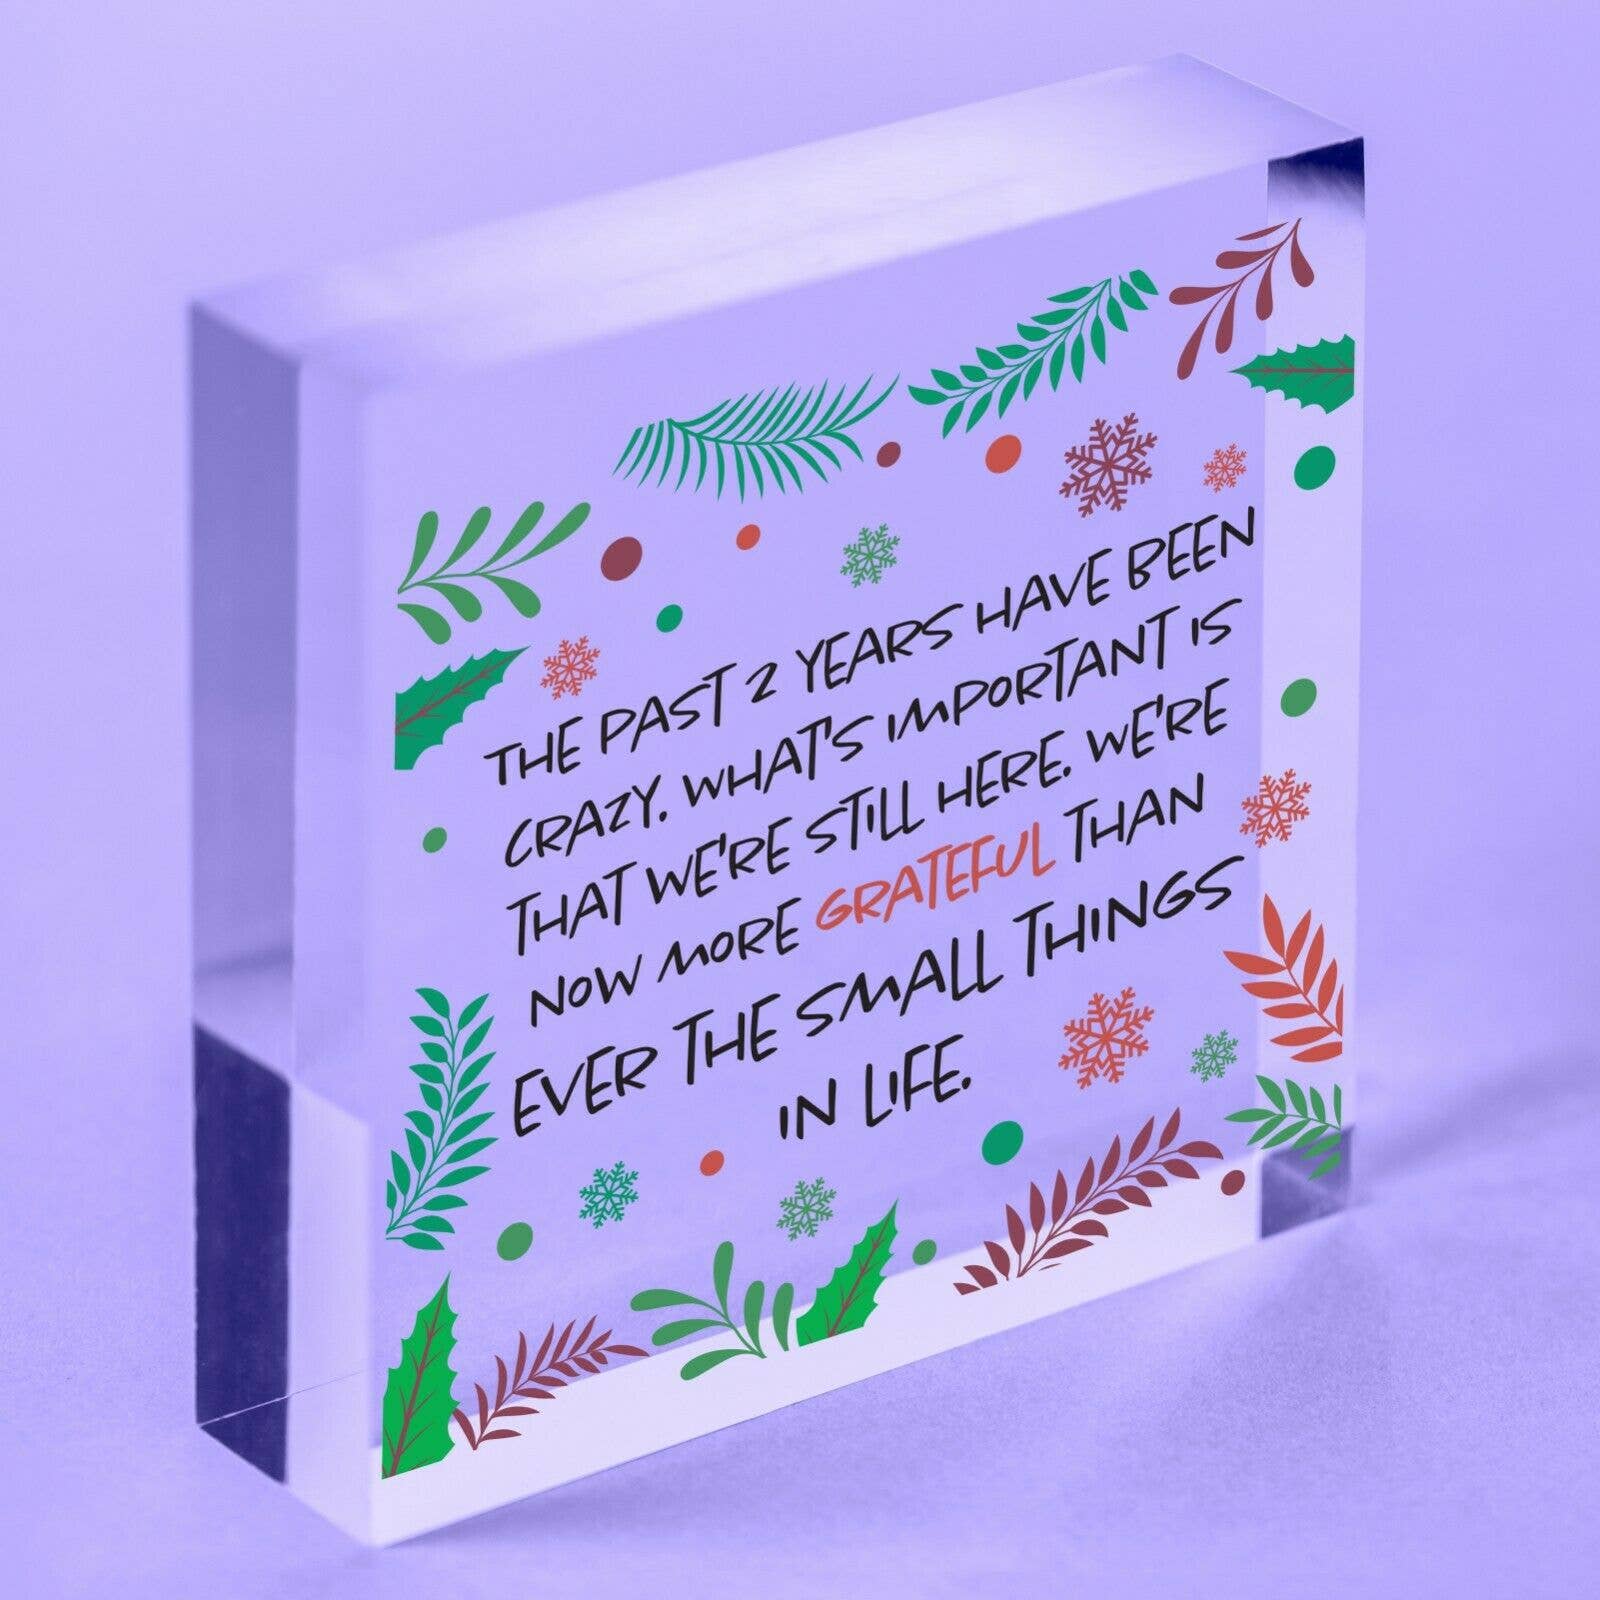 THE PAST 2 YEARS HAVE BEEN
CRAZY. WHAT'S IMPORTANT IS
THAT WE'RE STILL HERE. WE'RE
NOW MORE GRATEFUL THAN
EVER THE SMALL THINGS
IN LIFE.